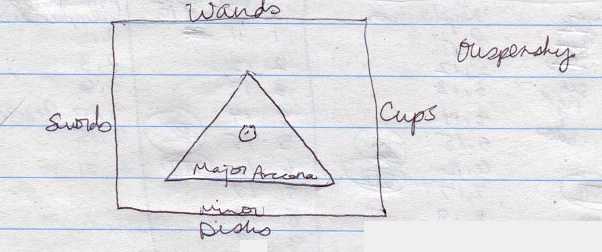 Wands
Ouspensky
Swords
Cups
Major Arcana
Minor
Disks